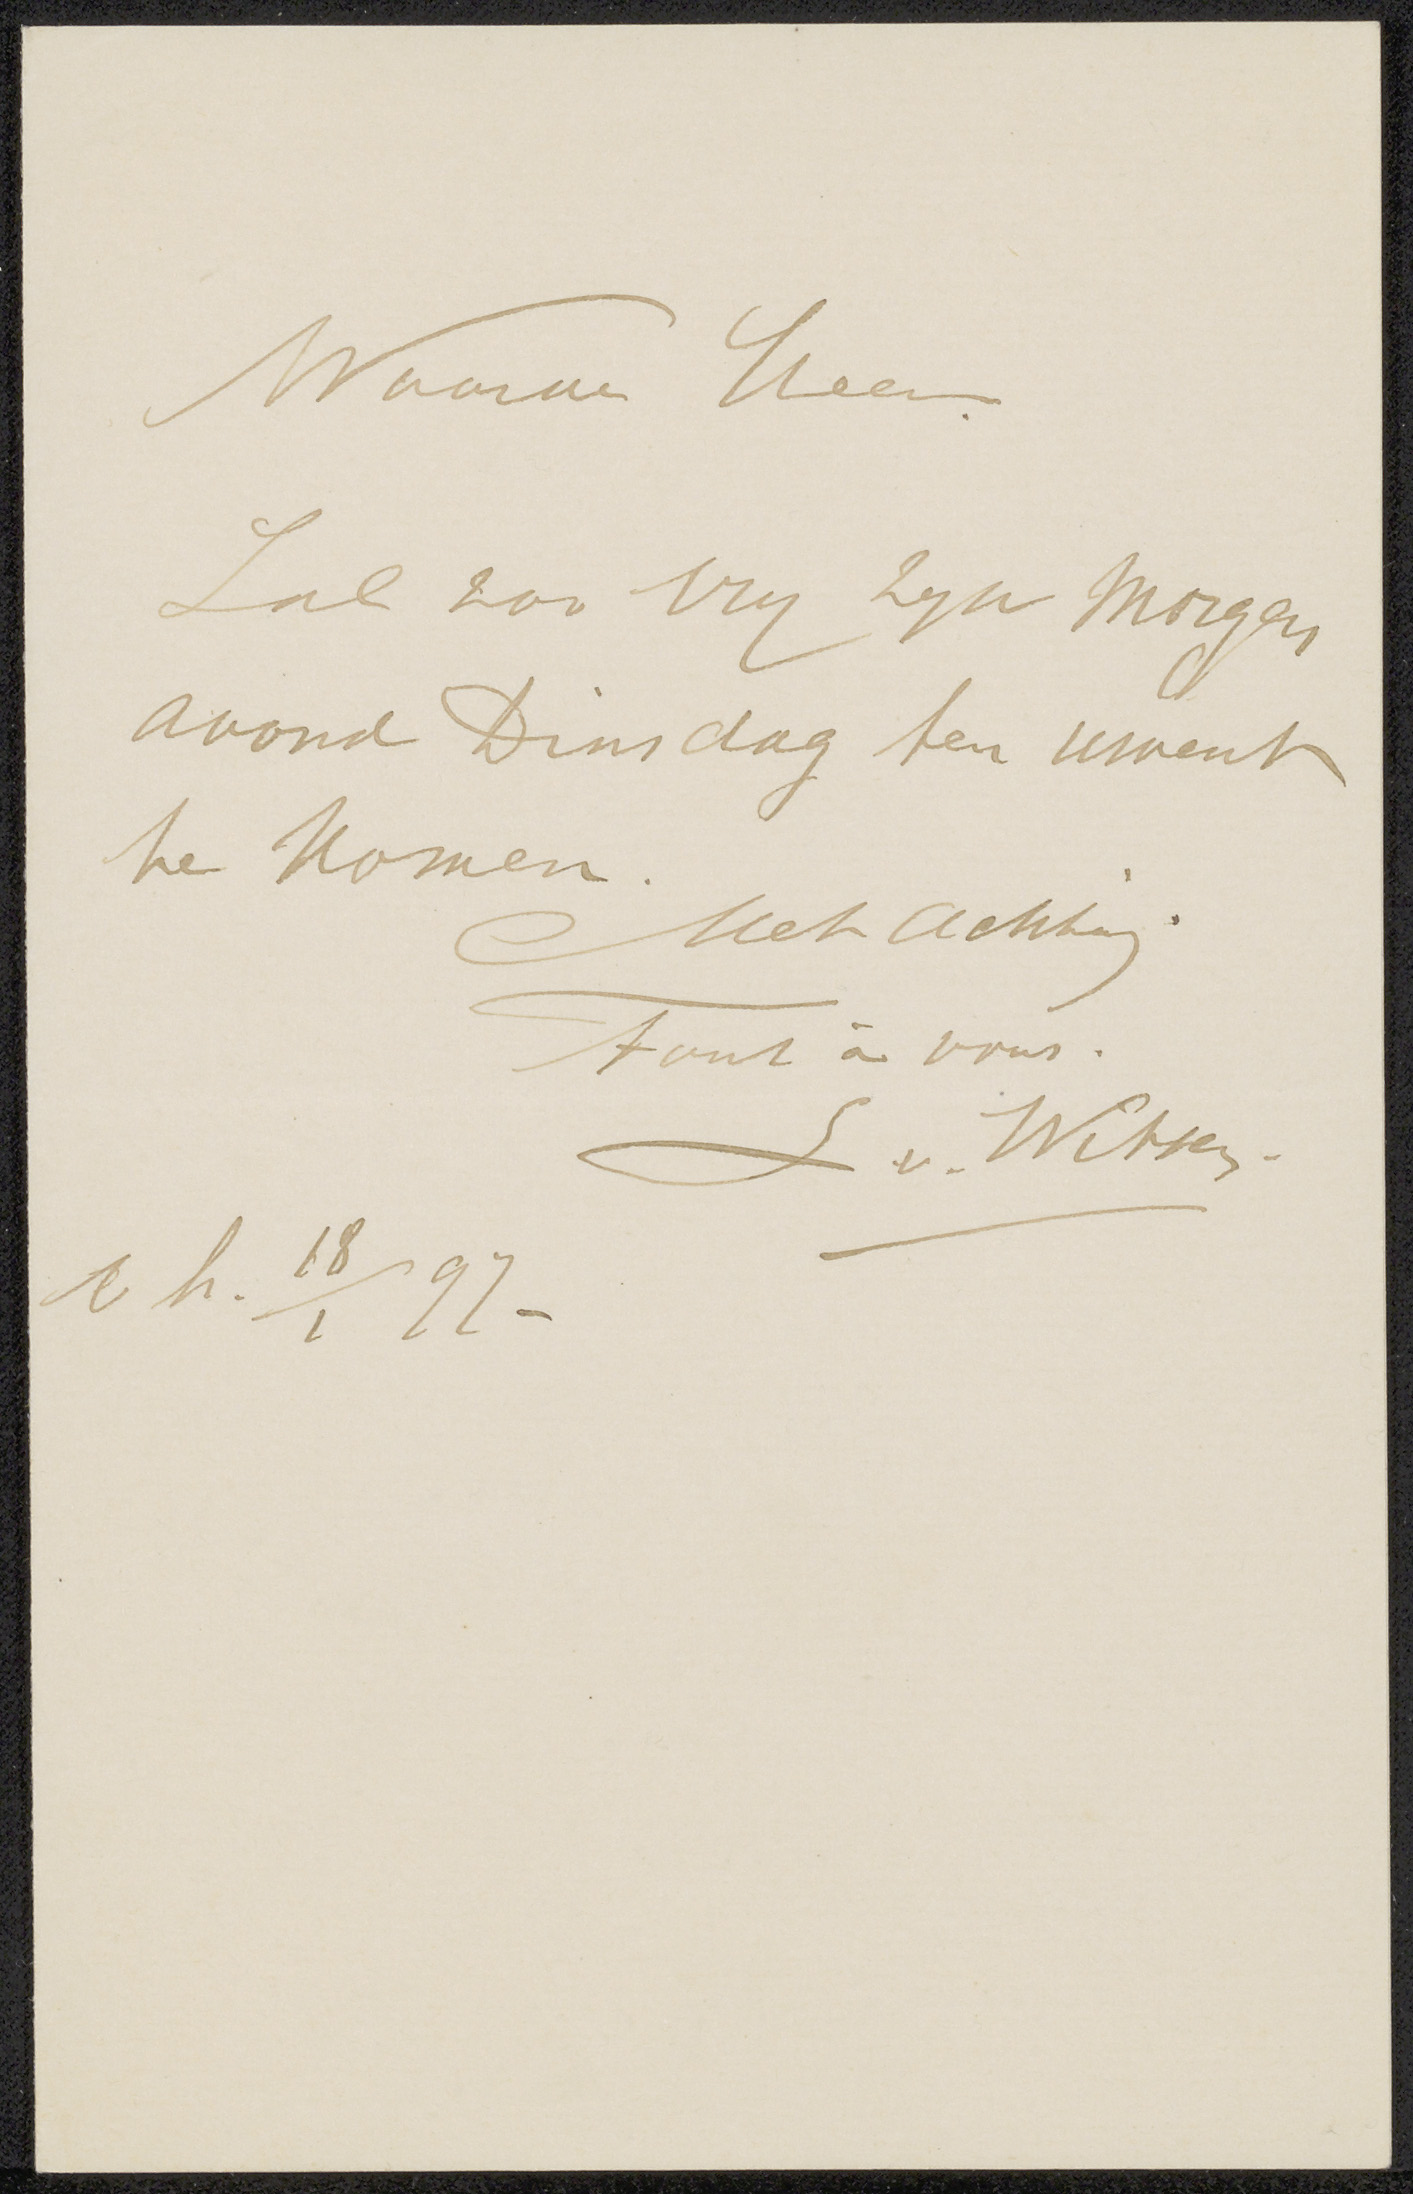 Waarde Heer.
Zal zoo vrij zijn Morgen
avond Dinsdag ten uwent
te komen.
Met Achting.
Tout à vous.
v. Witsen.
h. 18/1 97-